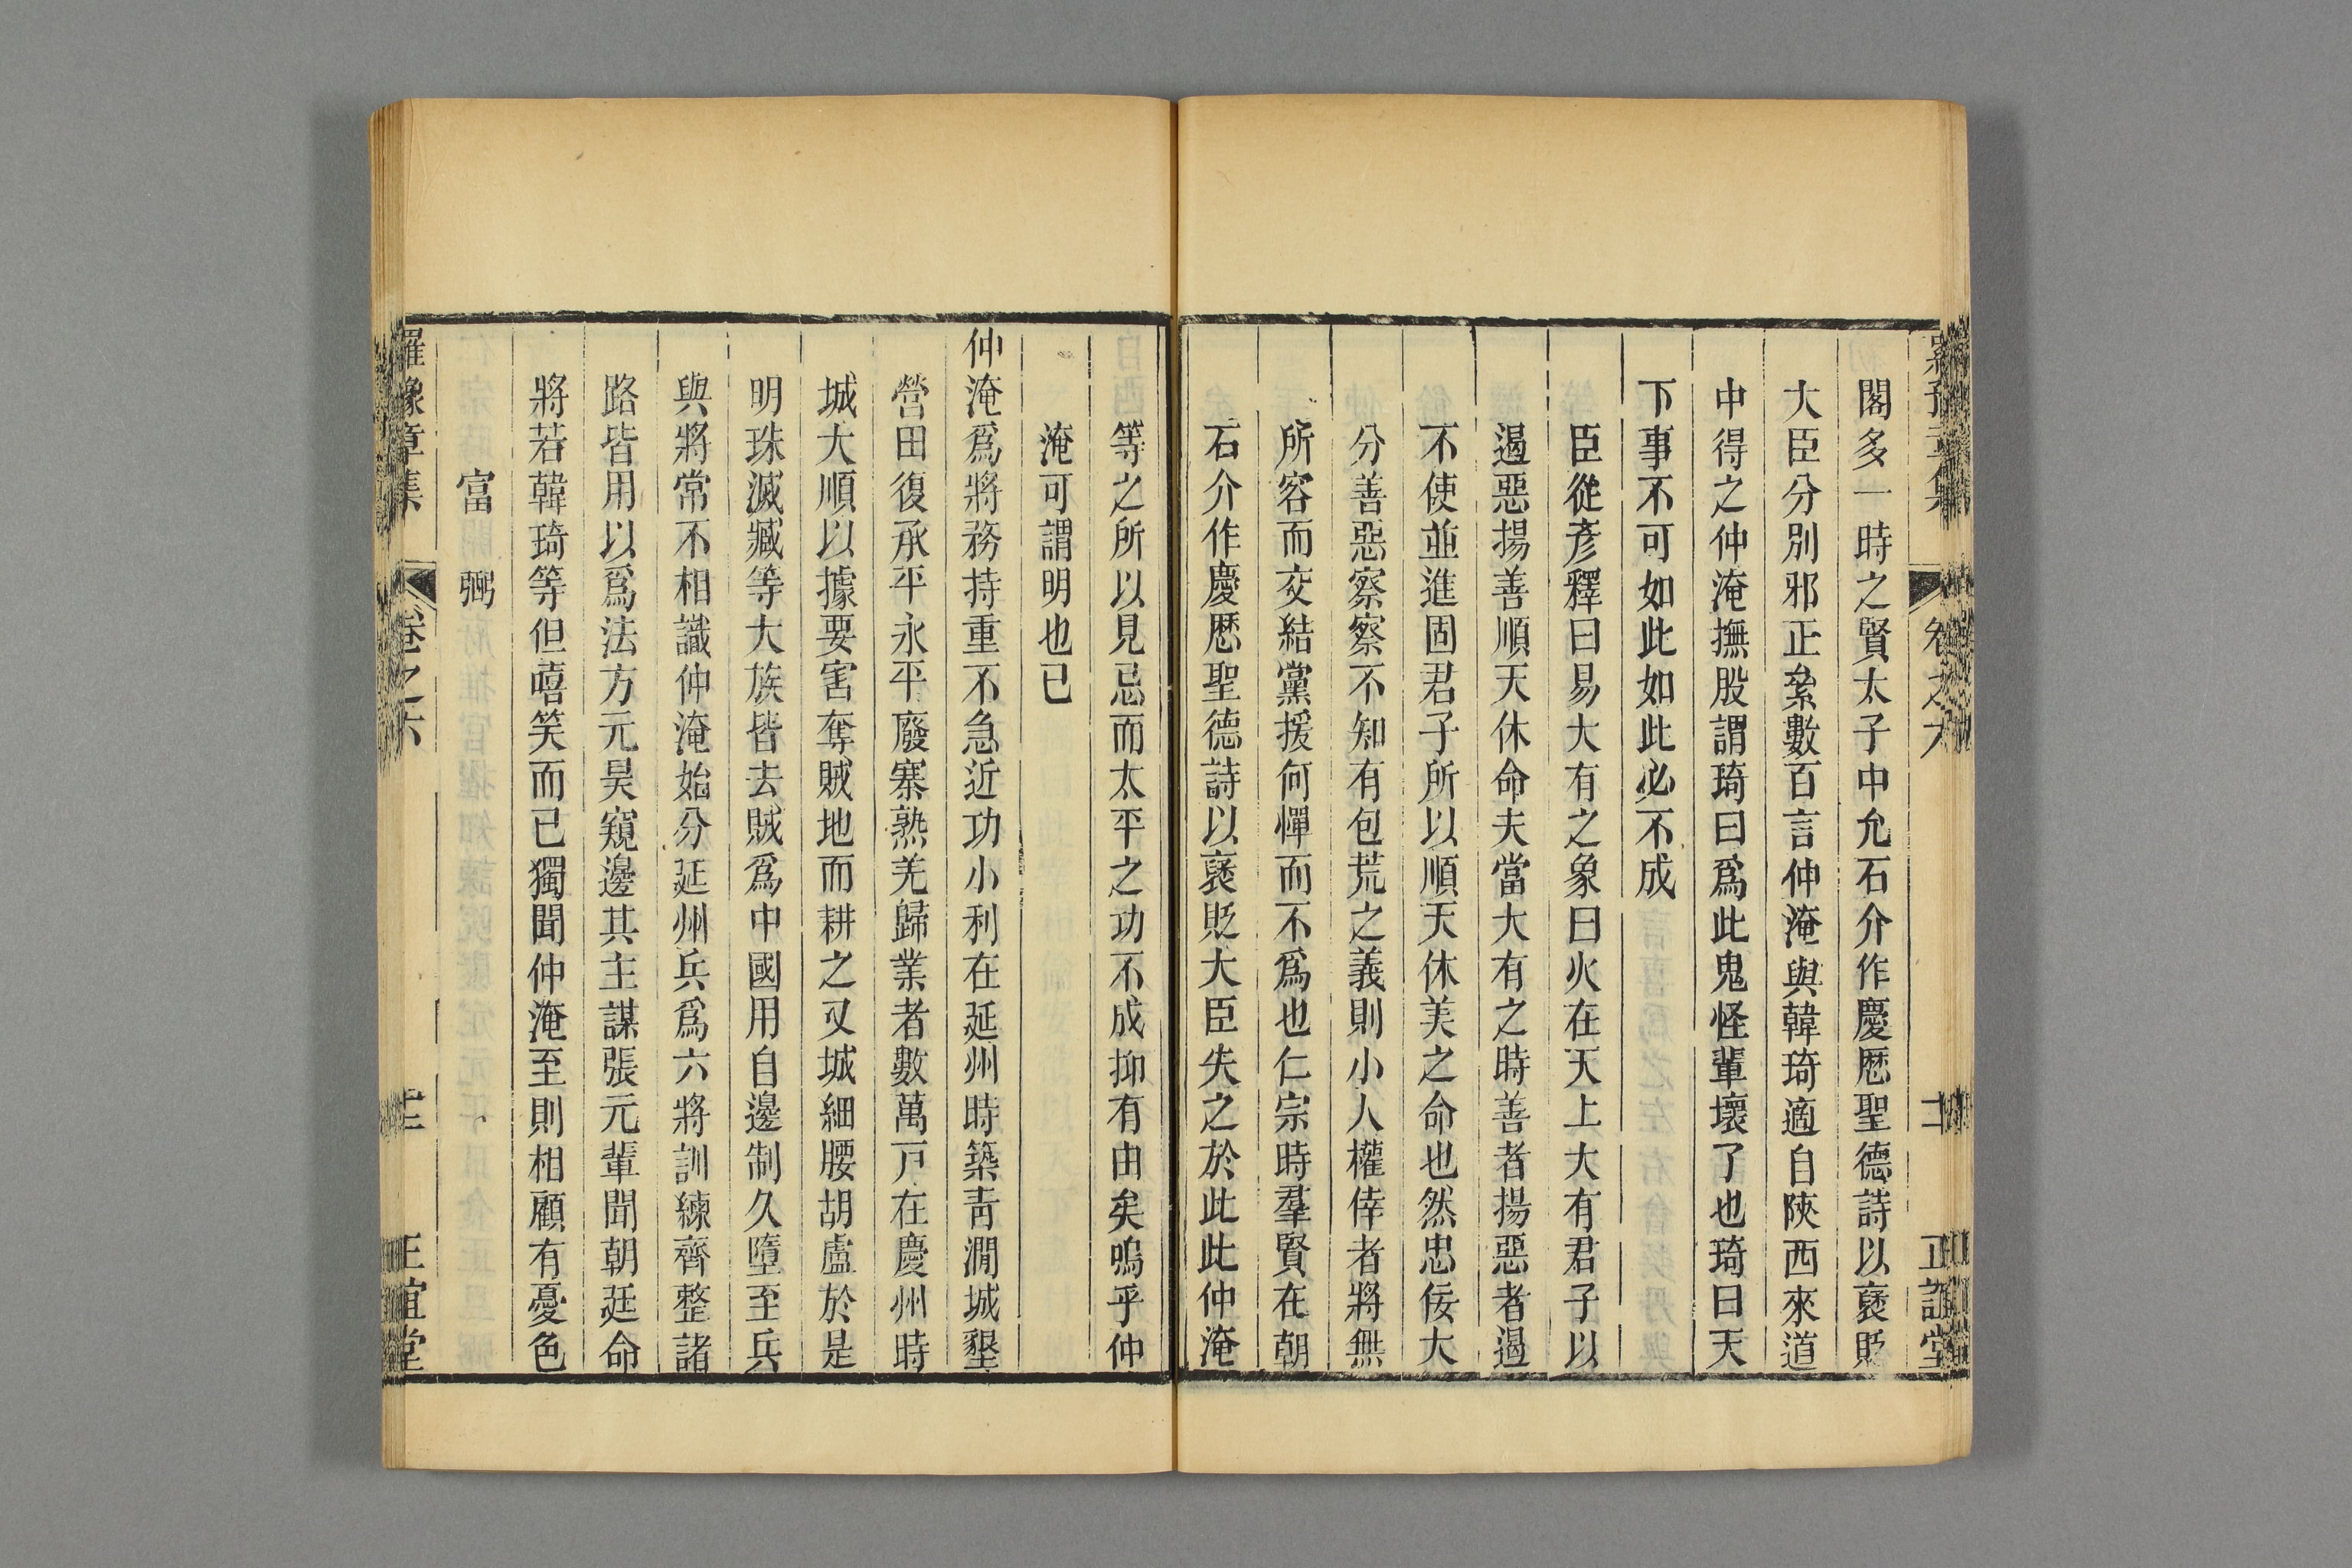 閣多一時之賢太子中允石介作慶厯聖德詩以襃貶
大臣分別邪正絫數百言仲淹與韓琦適自陝西來道
中得之仲淹撫股謂琦曰爲此鬼怪輩壞了也琦曰天
下事不可如此如此必不成
臣從彥釋曰易大有之象曰火在天上大有君子以
遏惡揚善順天休命夫當大有之時善者揚惡者遏
不使並進固君子所以順天休美之命也然忠佞大
分善惡察察不知有包荒之義則小人權倖者將無
所容而交結黨援何憚而不爲也仁宗時羣賢在朝
石介作慶厯聖德詩以襃貶大臣失之於此此仲淹
等之所以見忌而太平之功不成抑有由矣嗚乎仲
淹可謂明也已
仲淹爲將務持重不急近功小利在延州時築靑澗城墾
營田復承平永平廢寨熟羌歸業者數萬戸在慶州時
城大順以據要害奪賊地而耕之又城細腰胡盧於是
明珠滅臧等大族皆去賊爲中國用自邊制久墮至兵
與將常不相識仲淹始分延州兵爲六將訓練齊整諸
路皆用以爲法方元昊窺邊其主謀張元輩聞朝廷命
將若韓琦等但嘻笑而已獨聞仲淹至則相顧有憂色
富弼
羅豫章集 卷之六 正誼堂